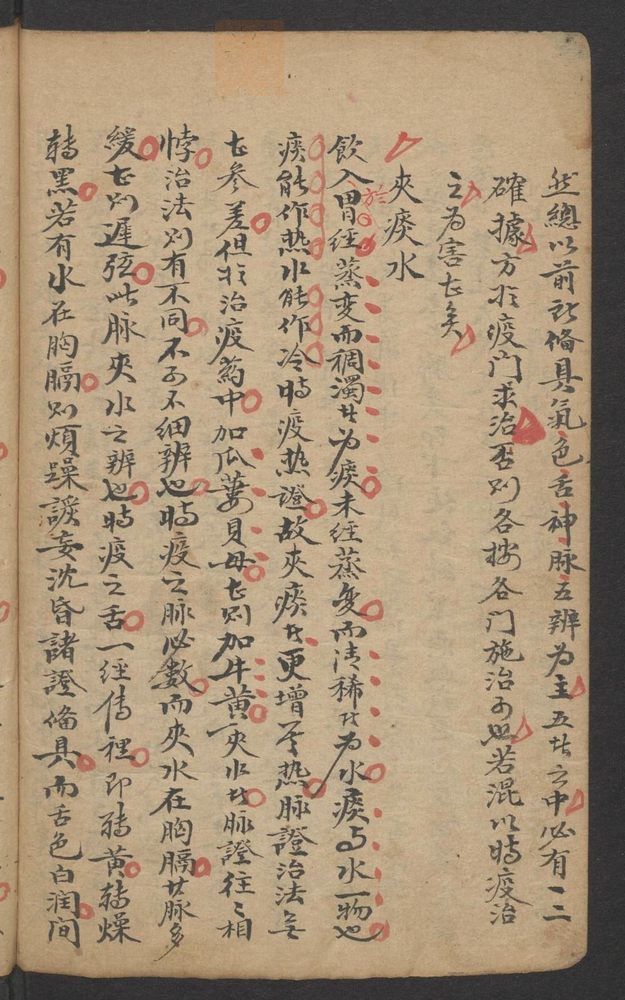 然總以前所俻具氣色舌神脉五辨为主五者之中必有一二
確據方於疫門求治否则各按各門施治可也若混以時疫治
之为害甚矣
夾痰水
飲入於胃經蒸变而稠濁者为痰未經蒸变而清稀者为水痰与水一物也
痰能作热水能作冷時疫热證故夾痰者更增其热脉證治法無
甚参差但於治疫藥中加瓜蔞貝母甚则加牛黄夾水者脉證往〻相
悖治法则有不同不可不细辨也時疫之脉必數而夾水在胸膈其脉多
緩甚则遲弦此脉夾水之辨也時疫之舌一經傳裡即轉黄轉燥
轉黑若有水在胸膈则煩躁譫妄沈昏諸證俻具而舌色白润间